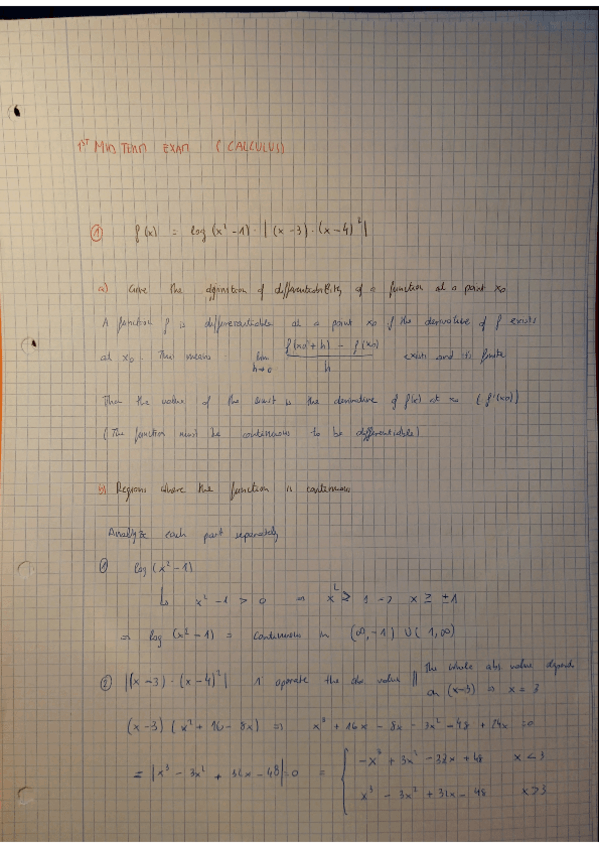 1ST MIDTERM EXAM (CALCULUS)
① f(x) = log(x²-1)·|(x-3)·(x-4)²|
a) Give the definition of differentiability of a function at a point x₀
A function f is differentiable at a point x₀ if the derivative of f exists
at x₀. This means lim h→0 f(x₀+h) - f(x₀) / h exists and is finite
Then the value of the limit is the derivative of f(x) at x₀ (f'(x₀))
(The function must be continuous to be differentiable)
b) Regions where the function is continuous
Analyze each part separately
① log(x²-1)
↳ x²-1 > 0 ⇒ x² ≥ 1 → x ≥ ±1
⇒ log(x²-1) = continuous in (∞,-1) U (1,∞)
② |(x-3)·(x-4)²| 1 operate the abs value || The whole abs value depends
on (x-3) ⇒ x = 3
(x-3)(x²+16-8x) ⇒ x³ + 16x - 8x - 3x² - 48 + 24x = 0
= |x³ - 3x² + 32x - 48| = 0 = { -x³ + 3x² - 32x + 48 x < 3
x³ - 3x² + 32x - 48 x > 3